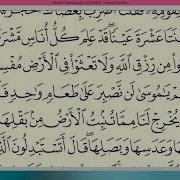 ٱثۡنَتَا عَشۡرَةَ عَيۡنٗاۖ قَدۡ عَلِمَ كُلُّ أُنَاسٖ مَّشۡرَ
وا۟ مِن رِّزۡقِ ٱللَّهِ وَلَا تَعۡثَوۡا۟ فِي ٱلۡأَرۡضِ مُفۡسِ
يَٰمُوسَىٰ لَن نَّصۡبِرَ عَلَىٰ طَعَامٖ وَٰحِدٖ فَ
يُخۡرِجۡ لَنَا مِمَّا تُنۢبِتُ ٱلۡأَرۡضُ مِنۢ بَقۡلِهَا
وَعَدَسِهَا وَبَصَلِهَاۖ قَالَ أَتَسۡتَبۡدِلُونَ ٱلَّ